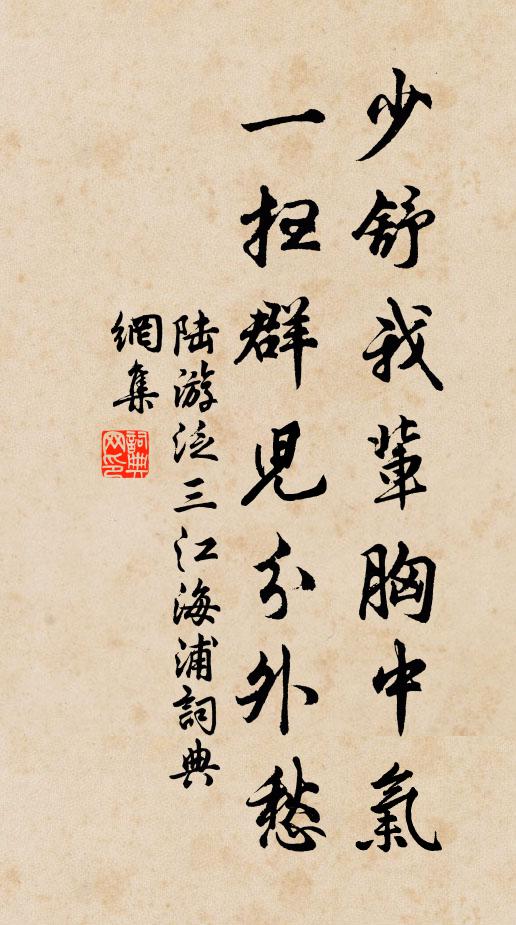 少舒我輩胸中氣
一扫群児分外愁
陆游泛三江海浦詞典
網集
詞典网印